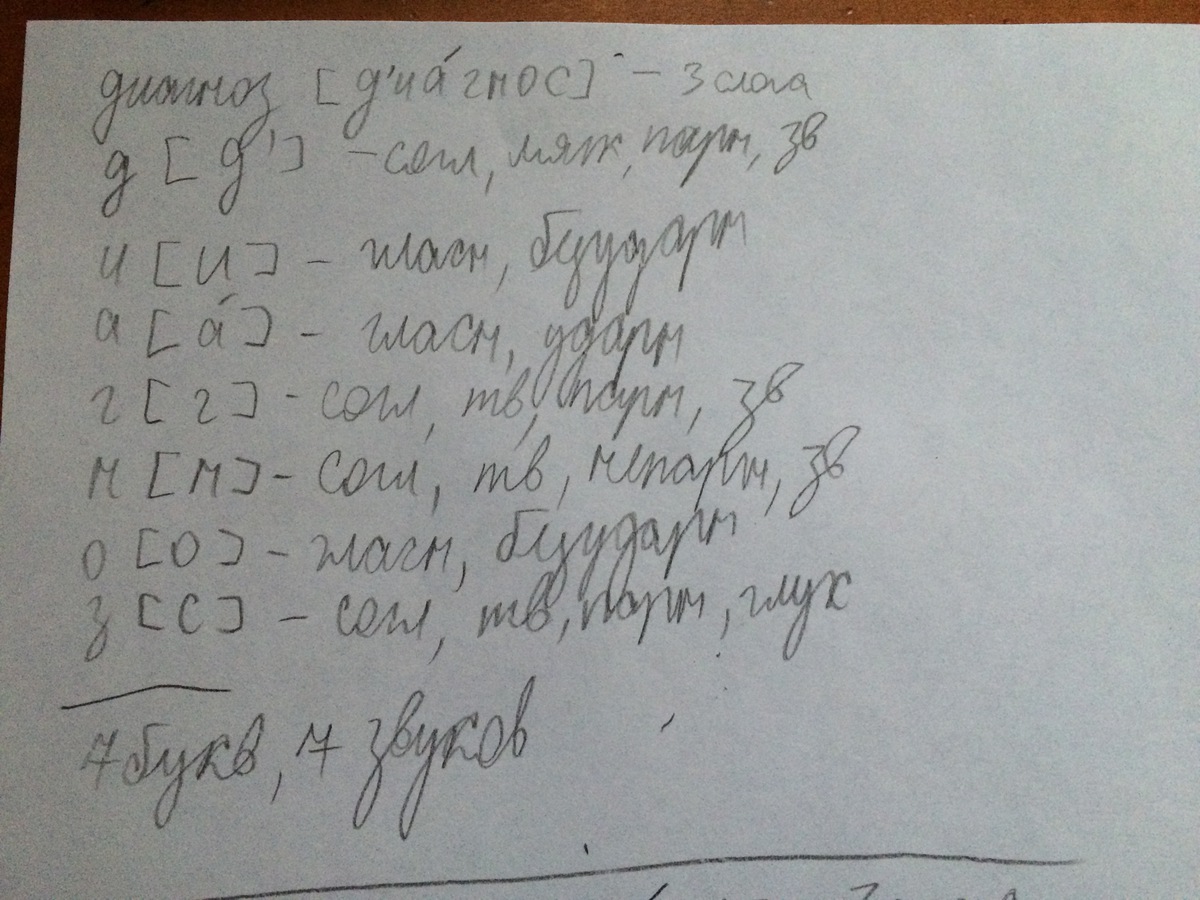 диагноз [д'иáгнос] – 3 слога
д [д'] – согл, мягк, парн, зв
и [и] – гласн, безударн
а [á] – гласн, ударн
г [г] - согл, тв, парн, зв
н [н] - согл, тв, непарн, зв
о [о] – гласн, безударн
з [с] – согл, тв, парн, глух
7 букв, 7 звуков